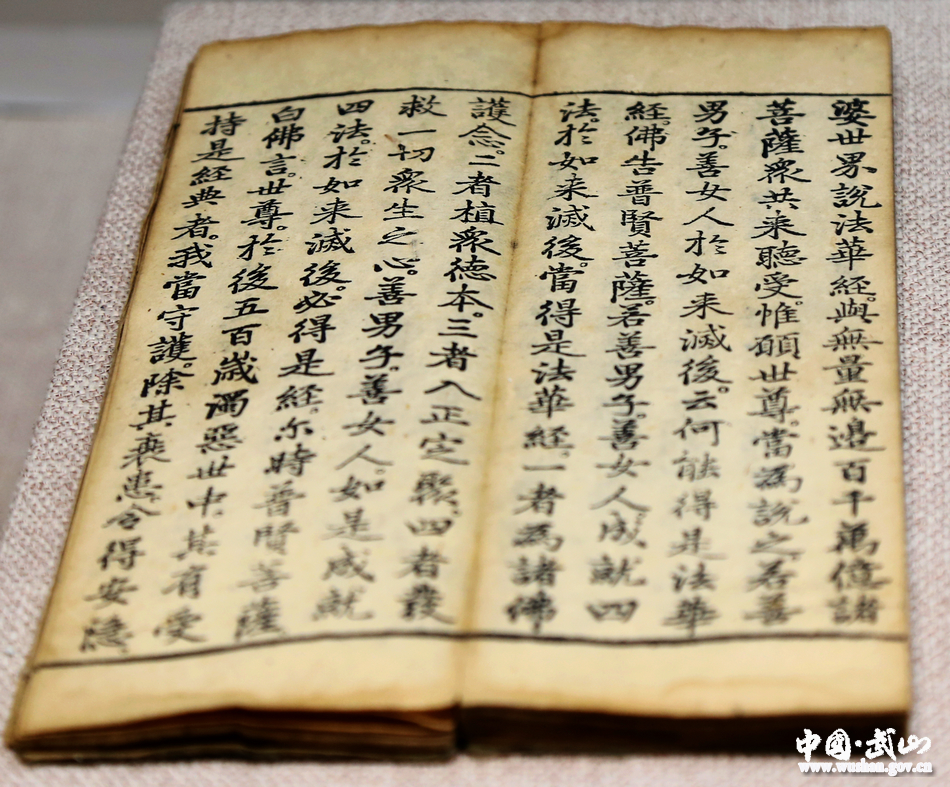 婆世界說法華經。與無量無邊百千萬億諸
菩薩衆共来聽受。惟願世尊。當為說之。若善
男子。善女人於如来滅後。云何能得是法華
經。佛告普賢菩薩。若善男子。善女人成就四
法。於如来滅後。當得是法華經。一者為諸佛
護念。二者植衆德本。三者入正定聚。四者發
救一切衆生之心。善男子。善女人。如是成就
四法。於如来滅後。必得是經。尔時普賢菩薩
白佛言。世尊。於後五百歲濁惡世中。其有受
持是經典者。我當守護。除其衰患。令得安隱
中国·武山
www.wushan.gov.cn